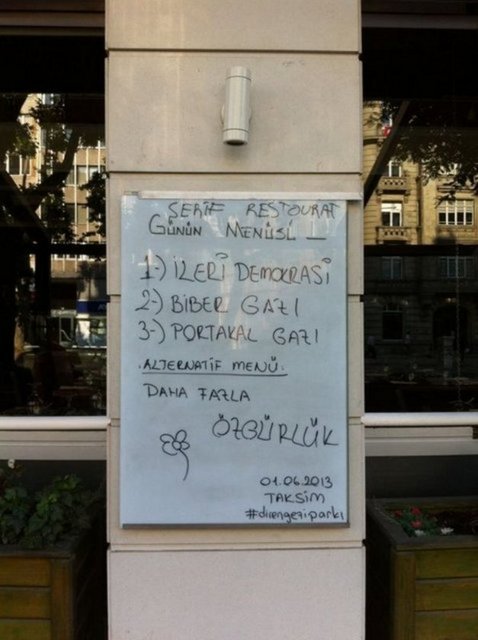 ŞERİF RESTOURAT
GÜNÜN MENÜSÜ
1-) İLERİ DEMOKRASİ
2-) BİBER GAZI
3-) PORTAKAL GAZI
ALTERNATİF MENÜ:
DAHA FAZLA
ÖZGÜRLÜK
01.06.2013
TAKSİM
#direngeziparkı